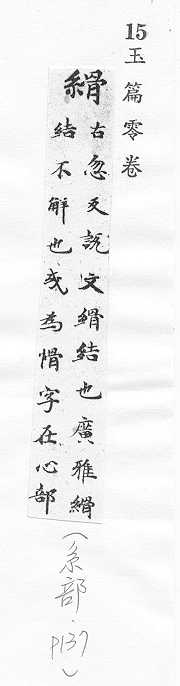 15玉篇零卷
縎
古忽反說文縎結也廣雅縎
結不解也或為愲字在心部
(糸部．P137)